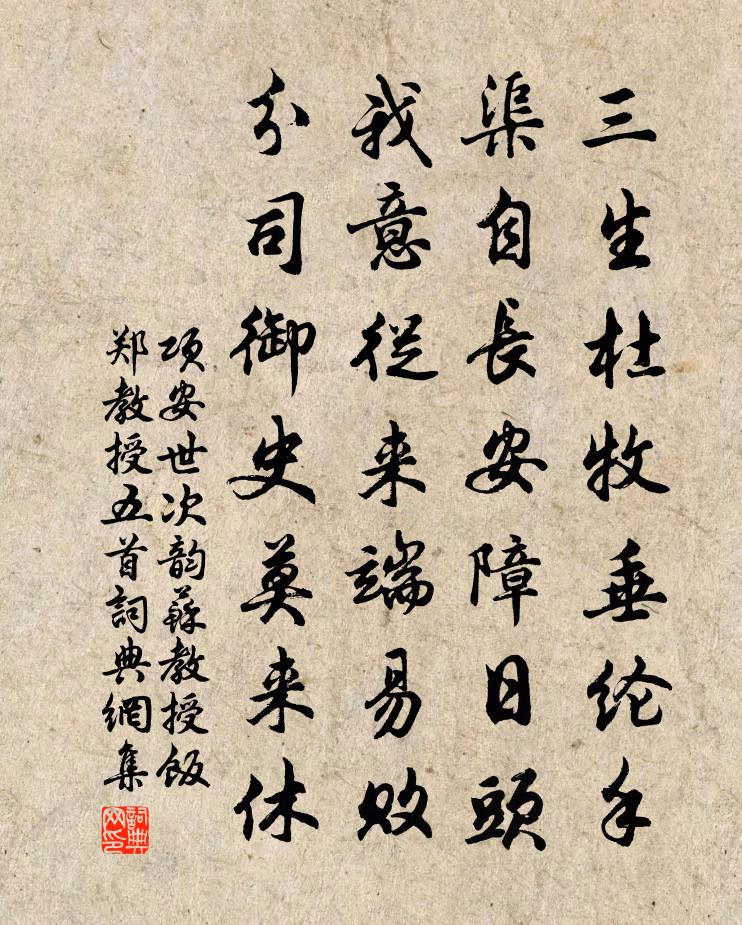 三生杜牧垂纶手
渠自長安障日頭
我意從来端易败
分司御史莫来休
项安世次韵蘇教授飯
郑教授五首詞典網集
詞典网印